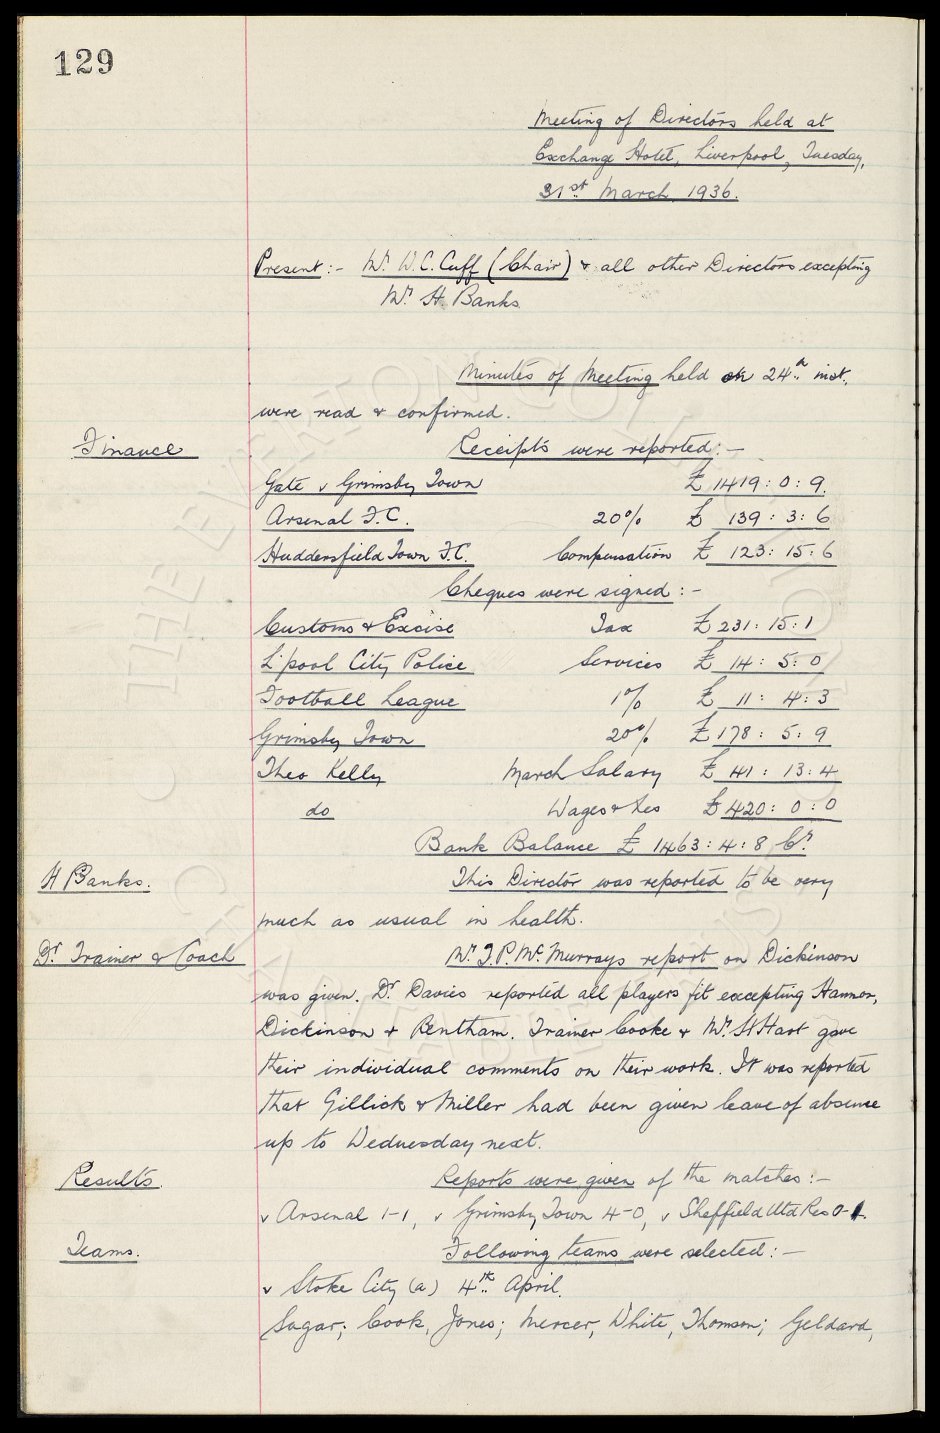 129
Meeting of Directors held at
Exchange Hotel, Liverpool, Tuesday,
31st March 1936.
Present:- Mr. W.C. Cuff (Chair) & all other Directors excepting
Mr. H. Banks
Minutes of Meeting held on 24th inst.
were read & confirmed.
Finance Receipts were reported:-
Gate v Grimsby Town £1419:0:9.
Arsenal F.C. 20% £ 139:3:6
Huddersfield Town F.C. Compensation £ 123:15:6
Cheques were signed:-
Customs & Excise Tax £231:15:1
L'pool City Police Services £ 14:5:0
Football League 1% £ 11:4:3
Grimsby Town 20% £178:5:9
Theo Kelly March Salary £ 41:13:4
do Wages & Tes £420:0:0
Bank Balance £ 1463:4:8 Cr.
H Banks. This Director was reported to be very
much as usual in health.
Dr. Trainer & Coach Mr. T.P. McMurrays report on Dickinson
was given. Dr. Davies reported all players fit excepting Hannon,
Dickinson & Bentham. Trainer Cooke & Mr. H Hart gave
their individual comments on their work. It was reported
that Gillick & Miller had been given leave of absence
up to Wednesday next.
Results. Reports were given of the matches:-
v Arsenal 1-1, v Grimsby Town 4-0, v Sheffield Utd Res 0-1.
Teams. Following teams were selected:-
v Stoke City (a) 4th April.
Sagar; Cook, Jones; Mercer, White, Thomson; Geldard,
© THE EVERTON COLLECTION CHARITABLE TRUST